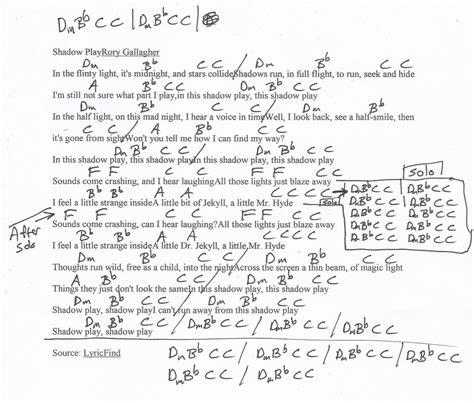 Dm Bb C C / Dm Bb C C /
Shadow PlayRory Gallagher
Dm Bb C C Dm Bb C C
In the flinty light, it's midnight, and stars collideShadows run, in full flight, to run, seek and hide
A Bb C C Dm Bb C C
I'm still not sure what part I play,in this shadow play, this shadow play
Dm Bb C C Dm Bb
In the half light, on this mad night, I hear a voice in timeWell, I look back, see a half-smile, then
C C A Bb C C
it's gone from sightWon't you tell me how I can find my way?
Dm Bb C C Dm Bb C C
In this shadow play, this shadow playIn this shadow play, this shadow play
Solo
F F C C F F C C
Sounds come crashing, and I hear laughingAll those lights just blaze away
Bb Bb A A C C C C
I feel a little strange insideA little bit of Jekyll, a little Mr. Hyde
Solo
Dm Bb C C / Dm Bb C C
Dm Bb C C / Dm Bb C C
Dm Bb C C Dm Bb C C
Dm Bb C C Dm Bb C C
Dm Bb C C Dm Bb C C
After Solo
F F C C F F C C
Sounds come crashing, can I hear laughing?All those lights just blaze away
Bb Bb A A C C C C
I feel a little strange insideA little Dr. Jekyll, a little Mr. Hyde
Dm Bb C C Dm Bb C C
Thoughts run wild, free as a child, into the nightAcross the screen a thin beam, of magic light
A Bb C C Dm Bb C C
Things they just don't look the sameIn this shadow play, this shadow play
Dm Bb C C Dm Bb C C
Shadow play, shadow playI can't run away from this shadow play
Dm Bb C C / Dm Bb C C / Dm Bb C C / Dm Bb C C
Shadow play, shadow play
Source: LyricFind
Dm Bb C C / Dm Bb C C / Dm Bb C C / Dm Bb C C
Dm Bb C C / Dm Bb C C /